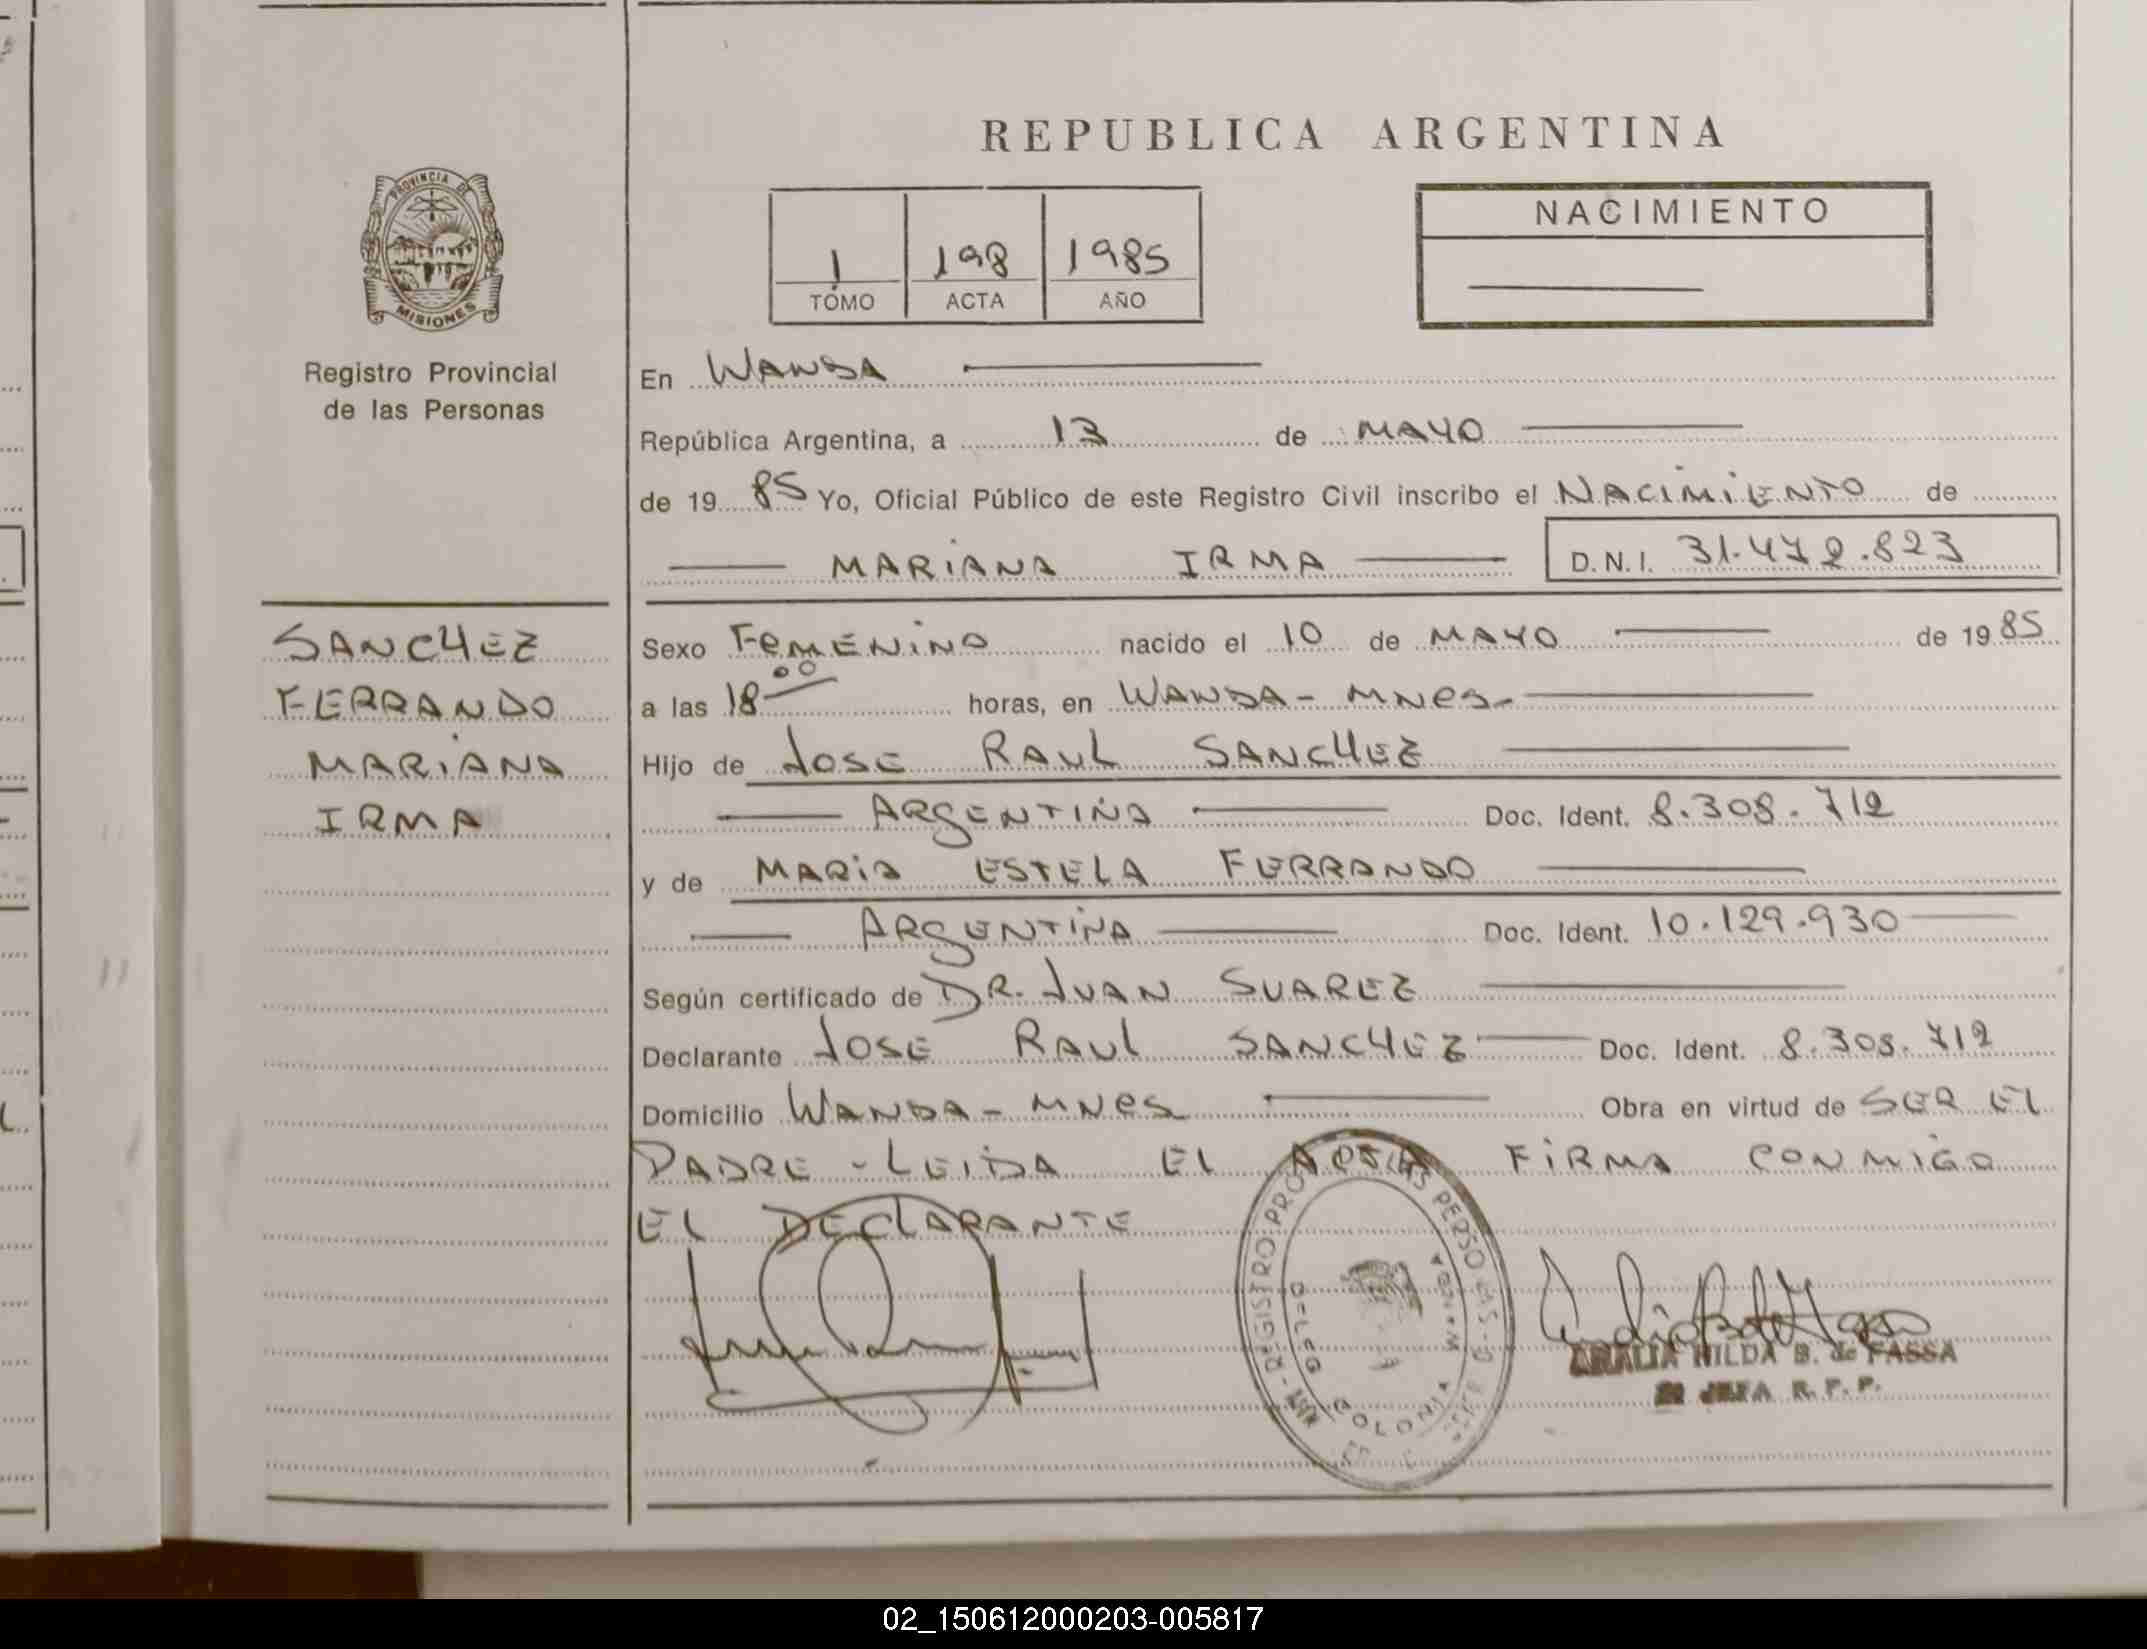 REPUBLICA ARGENTINA
PROVINCIA DE
MISIONES
Registro Provincial
de las Personas
1 198 1985
TOMO ACTA AÑO
NACIMIENTO
En WANDA
República Argentina, a 13 de MAYO
de 1985 Yo, Oficial Público de este Registro Civil inscribo el NACIMIENTO de
MARIANA IRMA D.N.I. 31.472.823
SANCHEZ
FERRANDO
MARIANA
IRMA
Sexo FEMENINO nacido el 10 de MAYO de 1985
a las 18 00 horas, en WANDA - MNES-
Hijo de JOSE RAUL SANCHEZ
ARGENTINA Doc. Ident. 8.308.712
y de MARIA ESTELA FERRANDO
ARGENTINA Doc. Ident. 10.129.930
Según certificado de DR. JUAN SUAREZ
Declarante JOSE RAUL SANCHEZ Doc. Ident. 8.308.712
Domicilio WANDA - MNES Obra en virtud de SER EL
PADRE - LEIDA EL ACTA FIRMA CONMIGO
EL DECLARANTE
REGISTRO PROV. LAS PERSONAS
DELEG COLONIA WANDA
HILDA B. de FASSA
JEFA R. P. P.
02_150612000203-005817